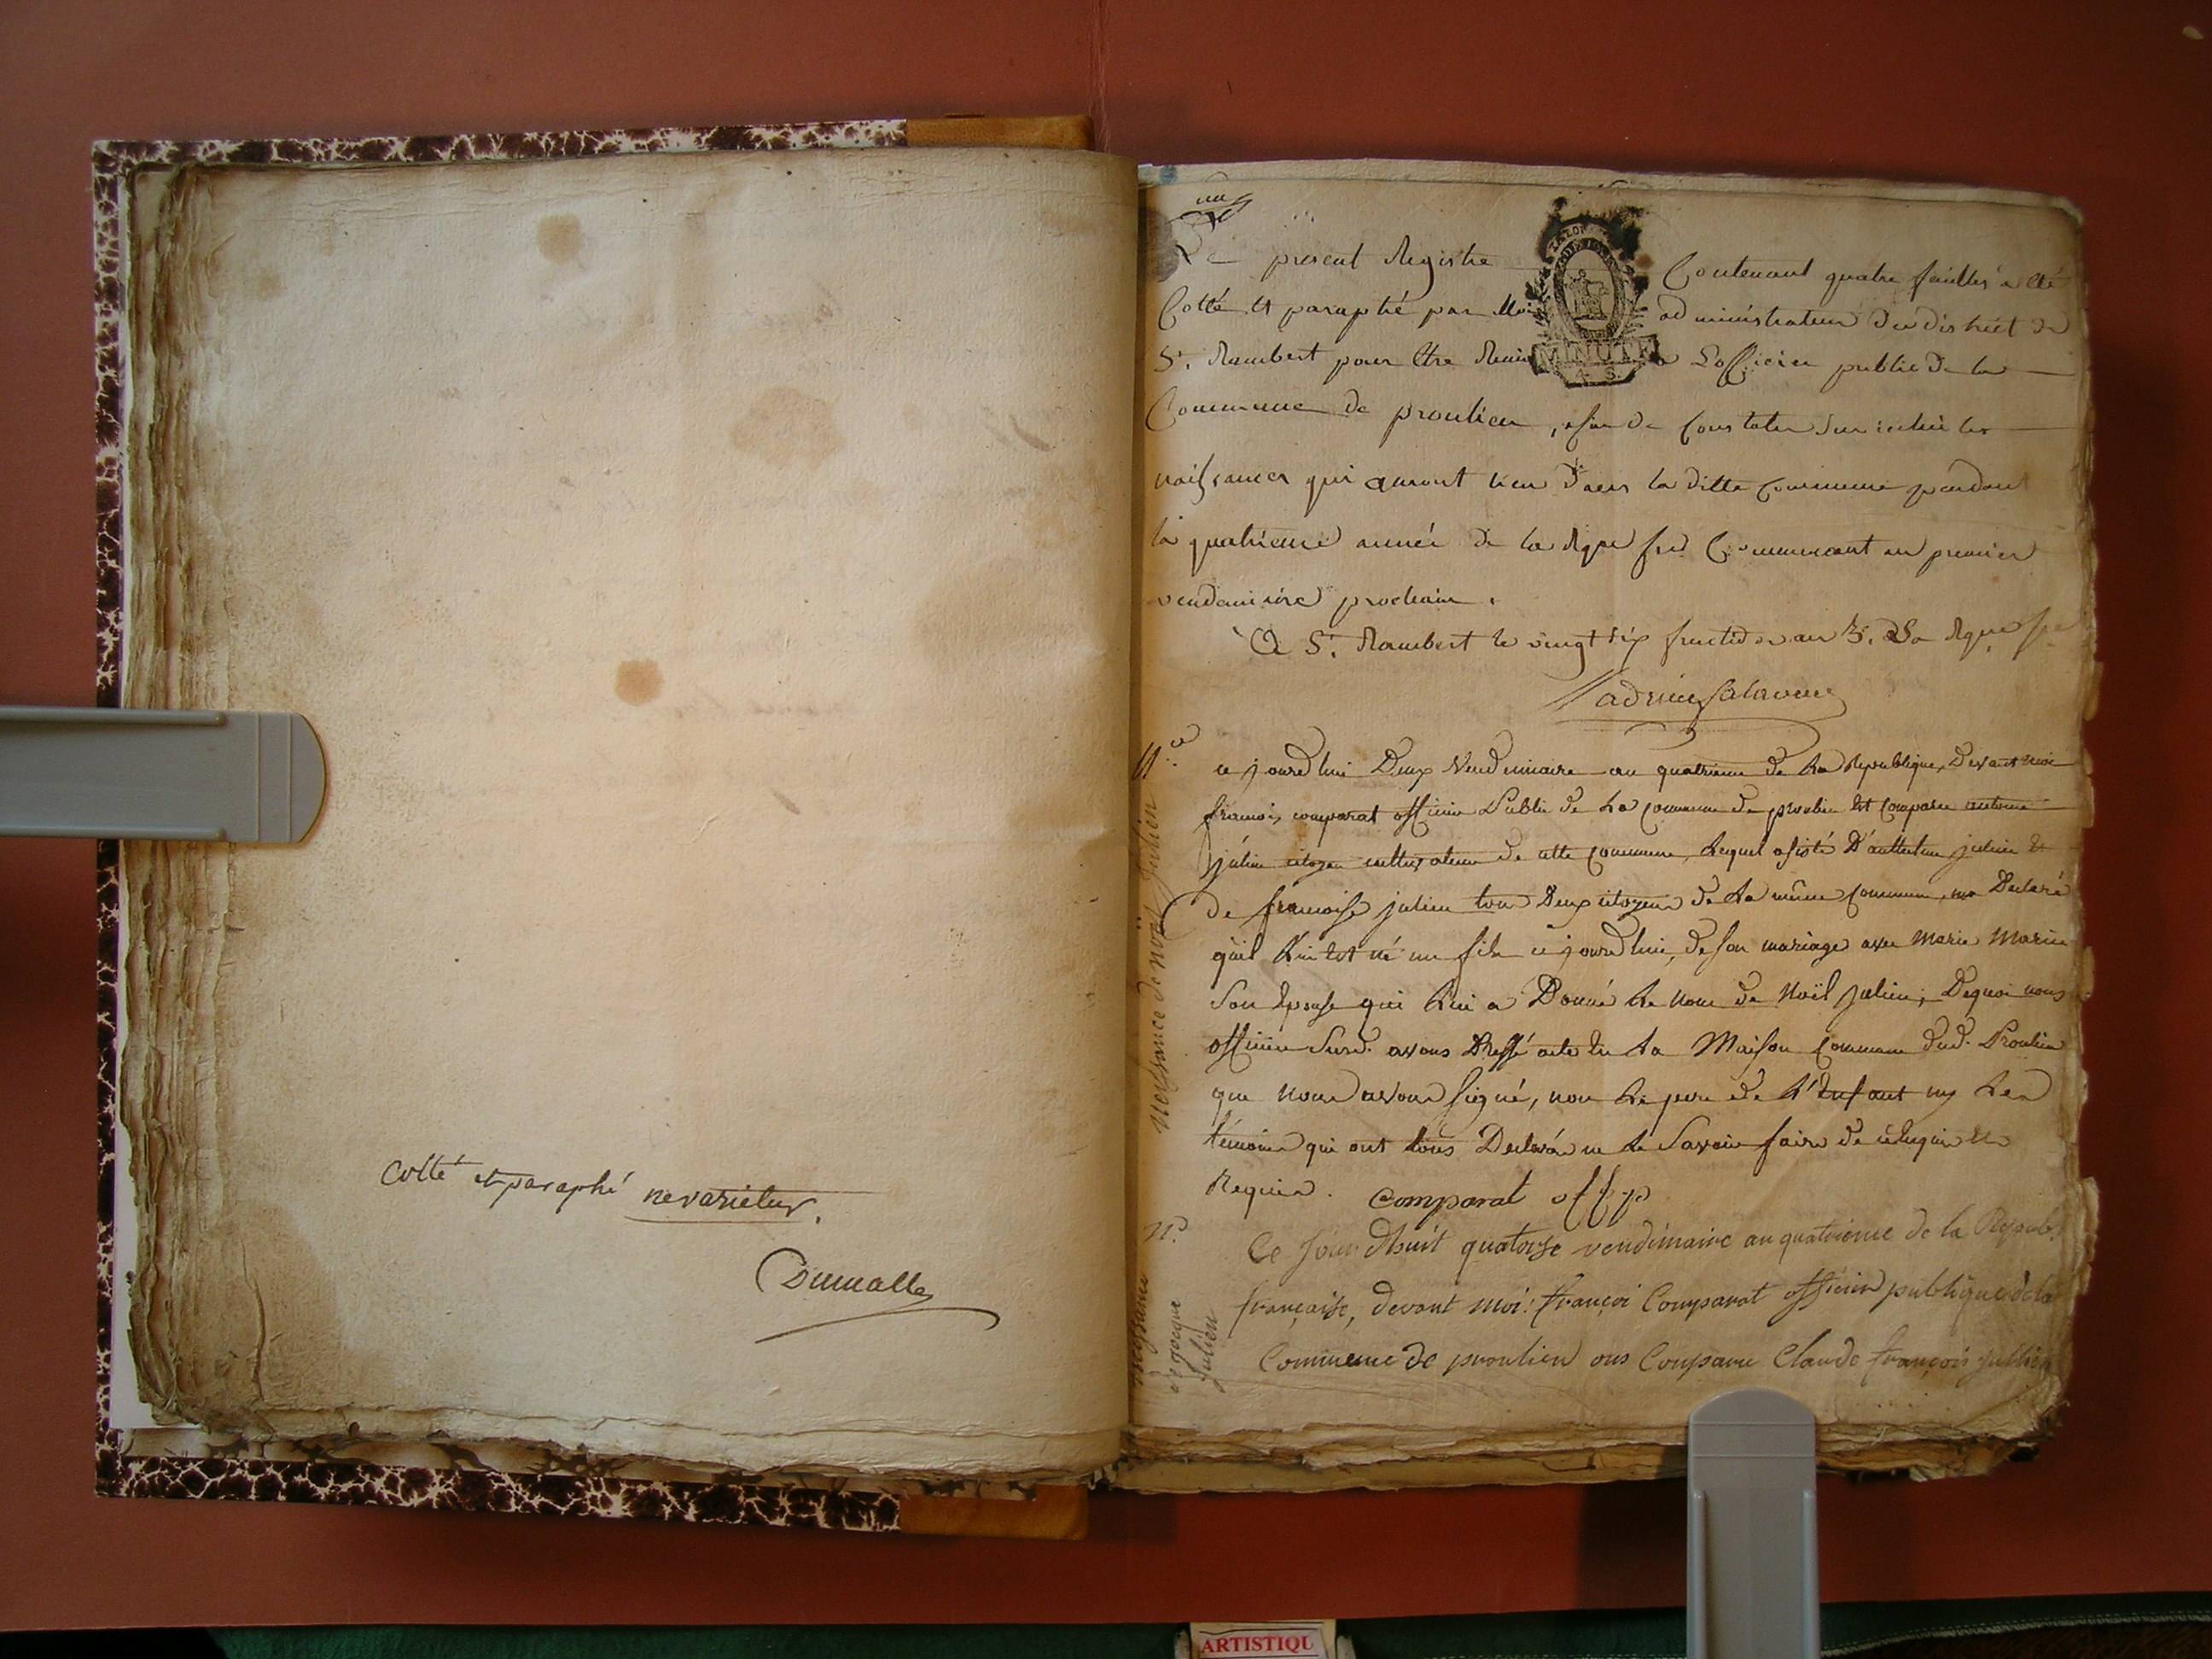 Cotté et paraphé ne varietur.
Dumalle
un
Le present Registre Contenant quatre feuilles a été
Cotté et paraphé par Moi administrateur du district de
St. Rambert pour être Remis a L'officier public de la
Commune de proulieu, afin de constater sur icelui les
naissances qui auront lieu dans la ditte commune pendant
la quatrieme année de la Rque fse Commencant au premier
vendemiaire prochain.
A St. Rambert le vingt six fructidor an 3e. De la Rque fse
MINUTE
nce
naissance de noël Julien
ce jourd'hui Deux Vendemiaire an quatrieme de La Republique, Devant moi
francois comparat officier Public de La commune de proulieu Est Comparu antoine
julien citoyen cultivateur de cette commune, Lequel assisté D'anthelme julien Et
De francoise julien tous Deux citoyens de La même commune, ma Declaré
quil Lui Est né un fils ce jourd'hui, de son mariage avec Marie Marin
Son Epouse qui Lui a Donné Le Nom de Noël julien; Dequoi nous
officier Susd. avons Dressé acte En La Maison Commune dud. Proulieu
que Nous avons signé, non Le pere de L'Enfant ny Les
témoins qui ont tous Declaré ne Le Savoir faire de ce Enquis Et
Requis. Comparat off p
nce
naissance
de
Julien
Ce Jour dhuit quatorse vendimaire an quatrieme de la Repub.
française, devant moi françoi Comparat officier publique de la
Commeune de proulieu ous Comparu Claude françois jullien
ARTISTIQU